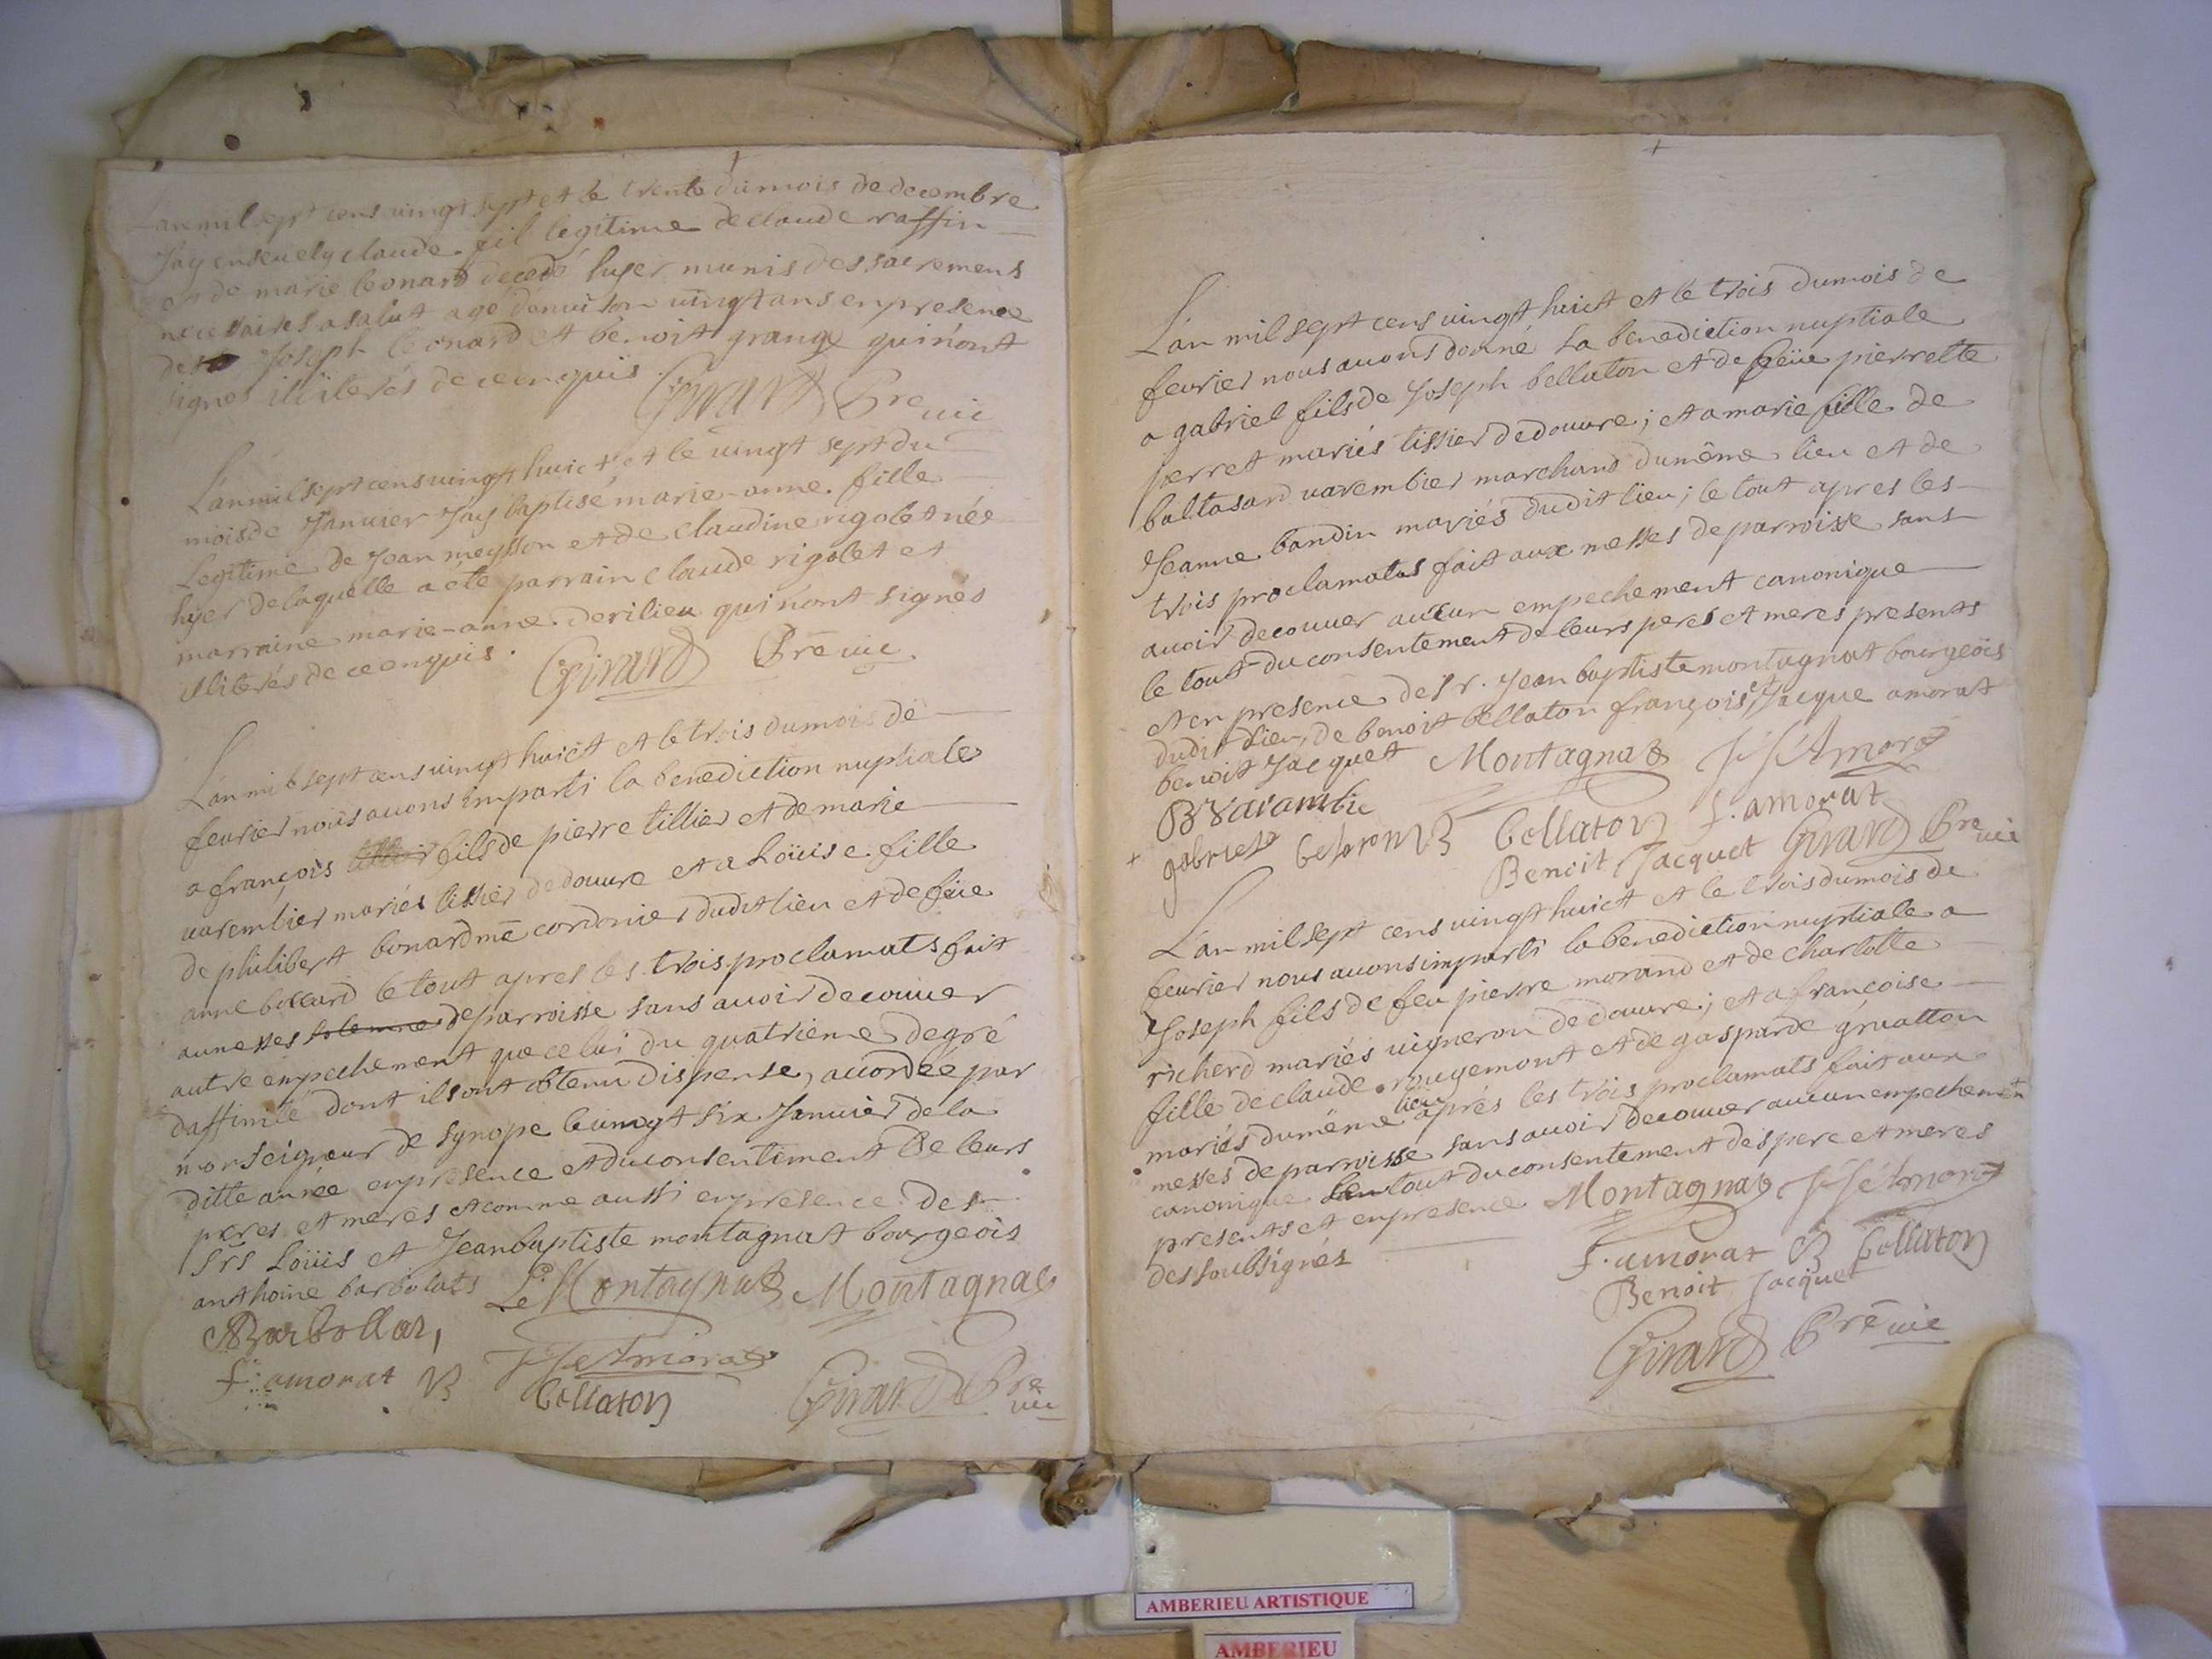 L'an mil sept cens vingt sept et le trente du mois de decembre
J'ay enseuely claude fil legitime de claude raffin
et de marie leonard decedé hyer munis des sacremens
necessaires a salut agé denuiron vingt ans en presence
de Joseph leonard et benoit grange qui n'ont
signes illiterés de ce enquis. Girard Pre vic
L'an mil sept cens vingt huict et le vingt sept du
mois de Januier J'ay baptisé marie-anne fille
Legitime de Jean meysson et de claudine rigolet née
hyer de laquelle a éte parrain claude rigolet et
marraine marie-anne derilieu qui n'ont signés
illiterés de ce enquis. Girard Prē vic
L'an mil sept cens vingt huict et le trois du mois de
feurier nous auons imparti la benediction nuptiale
a françois fils de pierre tillier et de marie
varembier mariés tissier de douure et a Loüise fille
de philibert bonard mē cordonier dudit lieu et de feüe
anne bollard le tout apres les trois proclamats fait
au messes solemne de parroisse sans auoir decouuer
autre empechement que celui du quatrieme degré
daffinité dont ils ont obtenu dispense, accordée par
monseigneur de synope le vingt six Januier de la
ditte année en presence et du consentement de leurs
peres et meres et comme aussi en presence des
srs Loüis et Jean baptiste montagnat bourgeois
anthoine barbolats Le Montagnat Montagnat
Barbollat,
f. amorat B Collaton Girard Pre vic
L'an mil sept cens vingt huict et le trois du mois de
feurier nous auons donné la benediction nuptiale
a gabriel fils de Joseph bellaton et de feüe pierrette
perret mariés tissier de douure; et a marie fille de
baltasard varembier marchand du même lieu et de
Jeanne bandin mariés dudit lieu; le tout apres les
trois proclamatas fait aux messes de parroisse sans
auoir decouuer aucun empechement canonique
le tout du consentement de leurs peres et meres presents
et en presence de sr. Jean baptiste montagnat bourgeois
dudit Lieu, de benoit bellaton françois et Jacque amorat
benoit Jacquet Montagnat J J Amorat
B Varambie
gabriel belaton B Collaton f. amorat
Benoit Jacquet Girard Pre vic
L'an mil sept cens vingt huict et le trois du mois de
feurier nous auons imparti la benediction nuptiale a
Joseph fils de feu pierre morand et de charlotte
richerd mariés vigneron de douure; et a françoise
fille de claude rougemont et de gasparde gruatton
mariés du même lieu aprés les trois proclamats fait aux
messes de parroisse sans auoir decouuer aucun empechement
canonique le tout du consentement des pere et meres
presents et en presence Montagnat J J Amorat
des soubsignés
f. amorat B Collaton
Benoit Jacquet
Girard Prē vic
AMBERIEU ARTISTIQUE
AMBERIEU